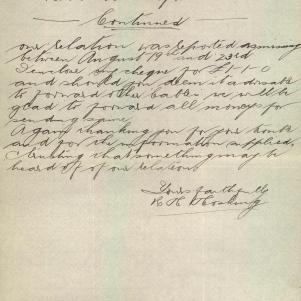 Continued
our relation was reported missing
between August 19th and 23rd
I enclose my cheque for £1-1-0
and should you deem it advisable
to forward other cable we will be
glad to forward all moneys for
sending same
Again thanking you for your trouble
and for the information supplied.
& trusting that something may be
heard of our relation
Yours faithfully
R H Hosking